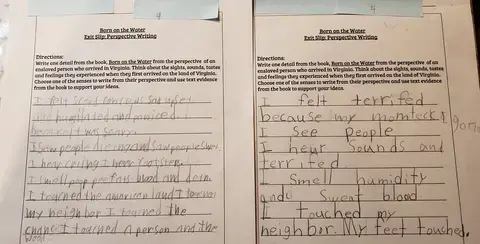 4
Born on the Water
Exit Slip: Perspective Writing
Directions:
Write one detail from the book, Born on the Water from the perspective of an
enslaved person who arrived in Virginia. Think about the sights, sounds, tastes
and feelings they experienced when they first arrived on the land of Virginia.
Choose one of the senses to write from their perspective and use text evidence
from the book to support your ideas.
I
and and
because it was scary
I saw people dieing and saw people
I hear I hear
I smell poop blood and
I touched the american land I
my neighbor I touched the
I touched a person and the
4
Born on the Water
Exit Slip: Perspective Writing
Directions:
Write one detail from the book, Born on the Water from the perspective of an
enslaved person who arrived in Virginia. Think about the sights, sounds, tastes
and feelings they experienced when they first arrived on the land of Virginia.
Choose one of the senses to write from their perspective and use text evidence
from the book to support your ideas.
I felt terrifed
because my
I see people
I hear sounds and
terrifed
I smell humidity
and sweat blood
I touched my
neighbor. My feet touched